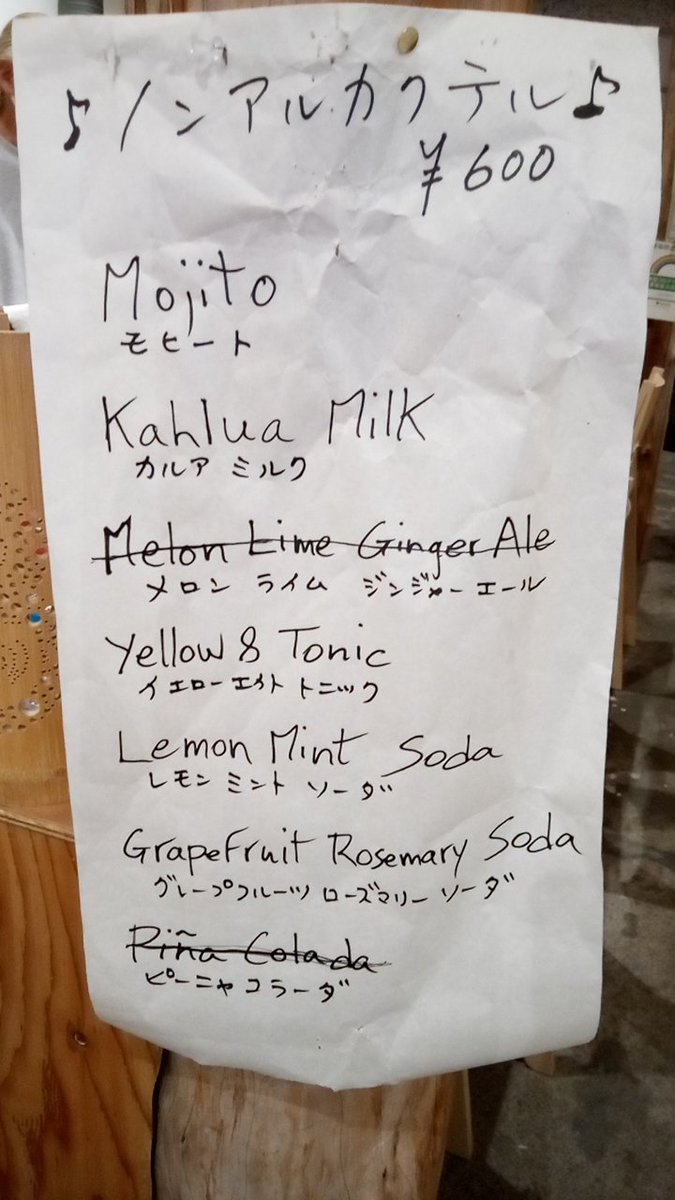 ♪ノンアルカクテル♪
¥600
Mojito
モヒート
Kahlua Milk
カルア ミルク
Melon Lime Ginger Ale
メロン ライム ジンジャーエール
Yellow 8 Tonic
イエローエイト トニック
Lemon Mint Soda
レモン ミント ソーダ
Grapefruit Rosemary Soda
グレープフルーツ ローズマリー ソーダ
Piña Colada
ピーニャ コラーダ